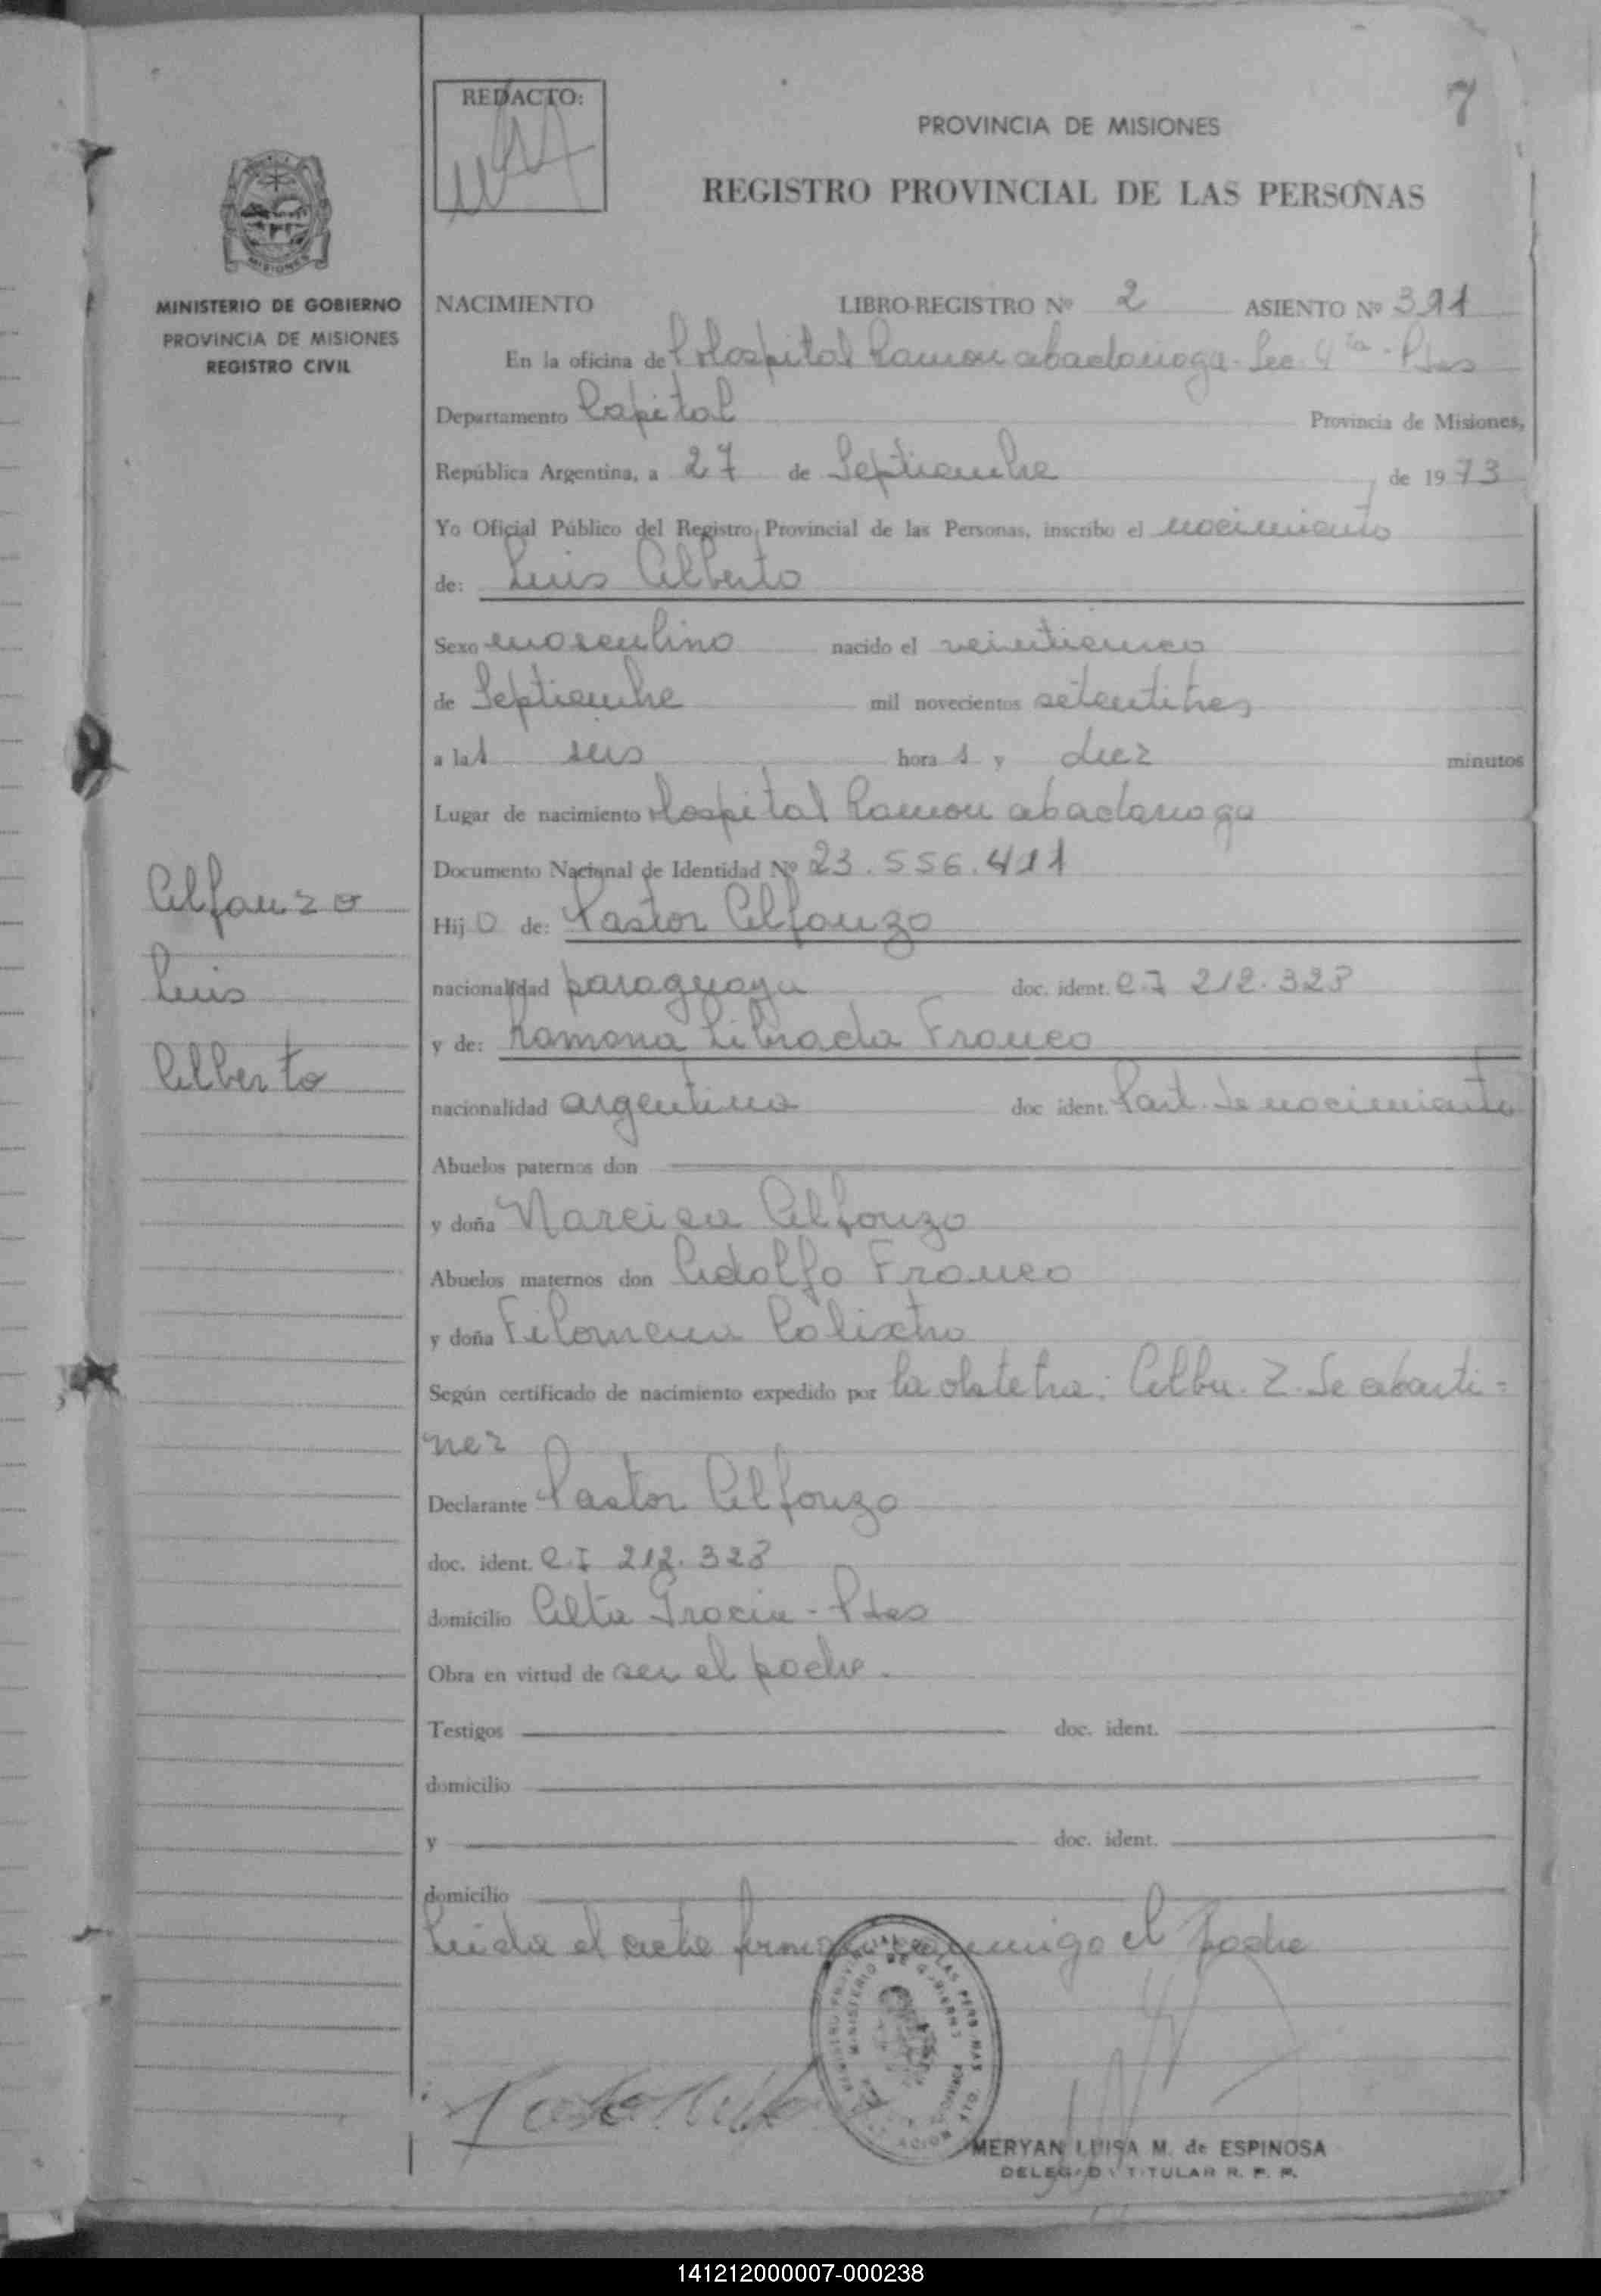 7
REDACTO:
PROVINCIA DE MISIONES
REGISTRO PROVINCIAL DE LAS PERSONAS
MISIONES
MINISTERIO DE GOBIERNO
PROVINCIA DE MISIONES
REGISTRO CIVIL
NACIMIENTO LIBRO-REGISTRO Nº 2 ASIENTO Nº 391
En la oficina de Hospital Ramon abadanaga - Sec. 4ta - Pdas
Departamento Capital Provincia de Misiones,
República Argentina, a 27 de Septiembre de 1973
Yo Oficial Público del Registro Provincial de las Personas, inscribo el nacimiento
de: Luis Alberto
Sexo masculino nacido el veinticinco
de Septiembre mil novecientos setentitres
a las seis horas y diez minutos
Lugar de nacimiento Hospital Ramon abadanaga
Documento Nacional de Identidad Nº 23.556.411
Alfonzo
Luis
Alberto
Hijo de: Pastor Alfonzo
nacionalidad paraguaya doc. ident. C.I 212.323
y de: Ramona Librada Franco
nacionalidad argentina doc ident. Part. de nacimiento
Abuelos paternos don
y doña Narcisa Alfonzo
Abuelos maternos don Adolfo Franco
y doña Filomena Calixtro
Según certificado de nacimiento expedido por la obstetra: Alba. Z. de
nez
Declarante Pastor Alfonzo
doc. ident. C.I 212.323
domicilio Alta Gracia - Pdas
Obra en virtud de ser el padre.
Testigos doc. ident.
domicilio
y doc. ident.
domicilio
Leida el acta firma conmigo el padre
MINISTERIO DE GOBIERNO
MERYAN LUISA M. de ESPINOSA
DELEGADA TITULAR R. P. P.
141212000007-000238